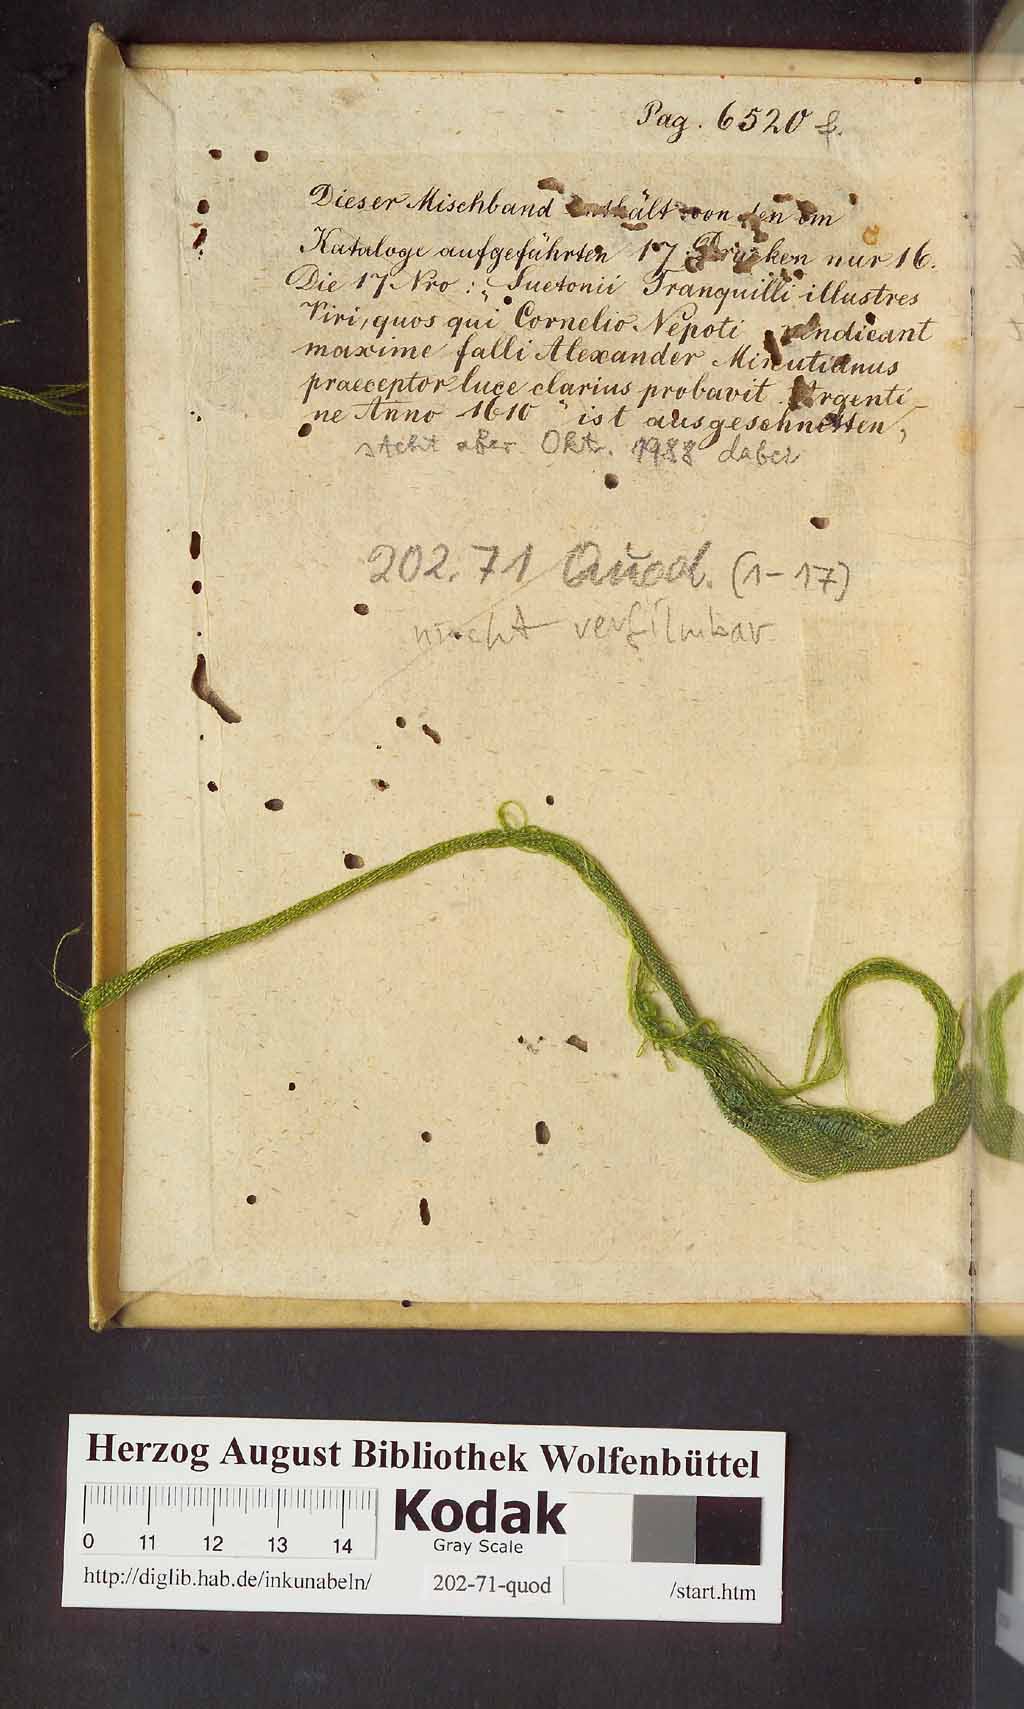 Pag. 6520 f.
Dieser Mischband enthält von den im
Kataloge aufgeführten 17 Drucken nur 16.
Die 17 Nro: „Suetonii Tranquilli illustres
Viri, quos qui Cornelio Nepoti vendicant
maxime falli Alexander Minutianus
praeceptor luce clarius probavit. Argenti-
ne Anno 1610" ist ausgeschnitten,
steht aber Okt. 1988 dabei
202.71 Quod. (1-17)
nicht verfilmbar
Herzog August Bibliothek Wolfenbüttel
Kodak
Gray Scale
0 11 12 13 14
http://diglib.hab.de/inkunabeln/ 202-71-quod /start.htm